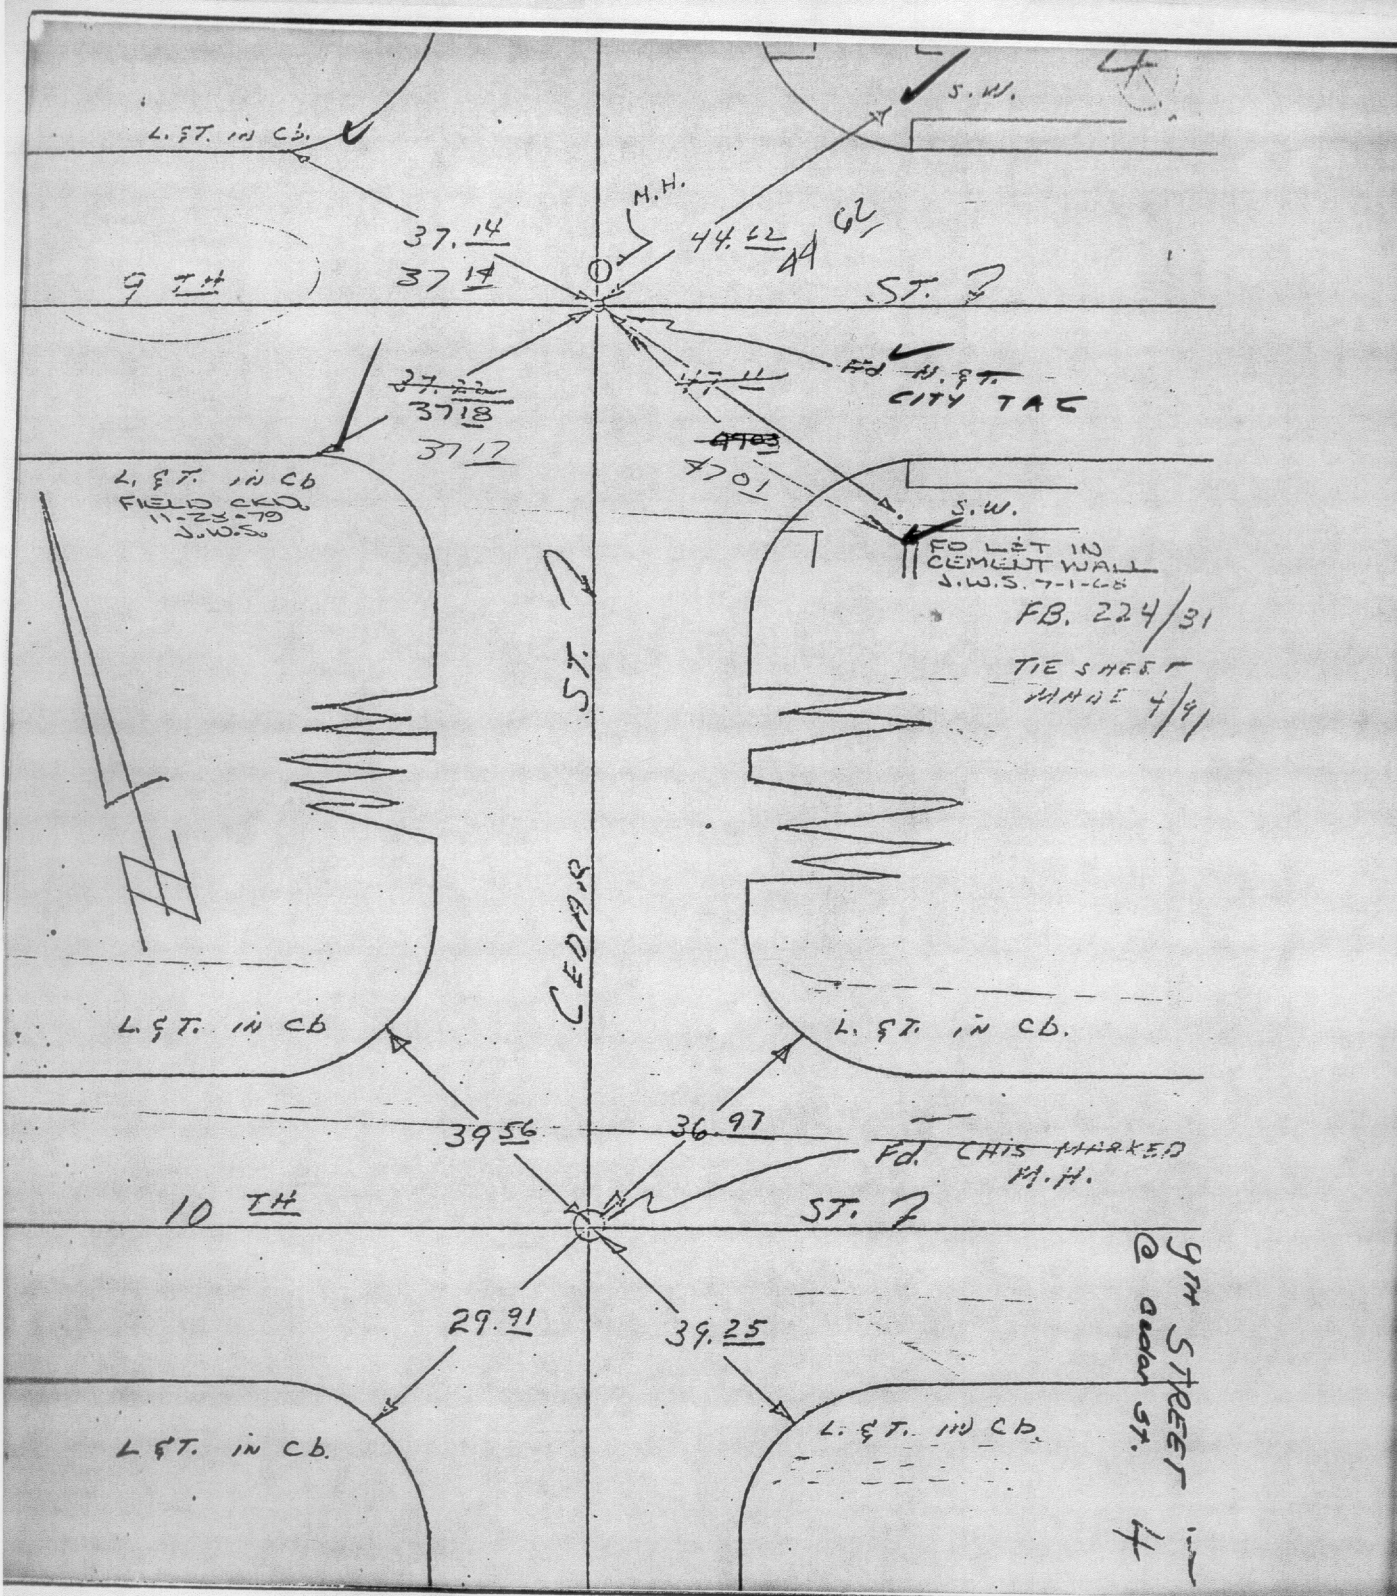 4
S.W.
L. &T. IN Cb.
M.H.
37.14
44.62
44 62
37 14
9 TH
ST.
Fd N. &T.
CITY TAG
37.22
47.11
37 18
37 17
4703
4701
L. &T. IN Cb
FIELD CKD.
11-28-79
J.W.S.
S.W.
FD L&T IN
CEMENT WALL
J.W.S. 7-1-68
FB. 224/31
TIE SHEET
MADE 4/91
CEDAR ST.
L. &T. IN Cb
L. &T. IN Cb.
39 56
36.97
Fd. CHIS MARKED
M.H.
10 TH
ST.
29.91
39.25
L &T. IN Cb.
L. &T. IN Cb.
9TH STREET
@ cedar st. 4